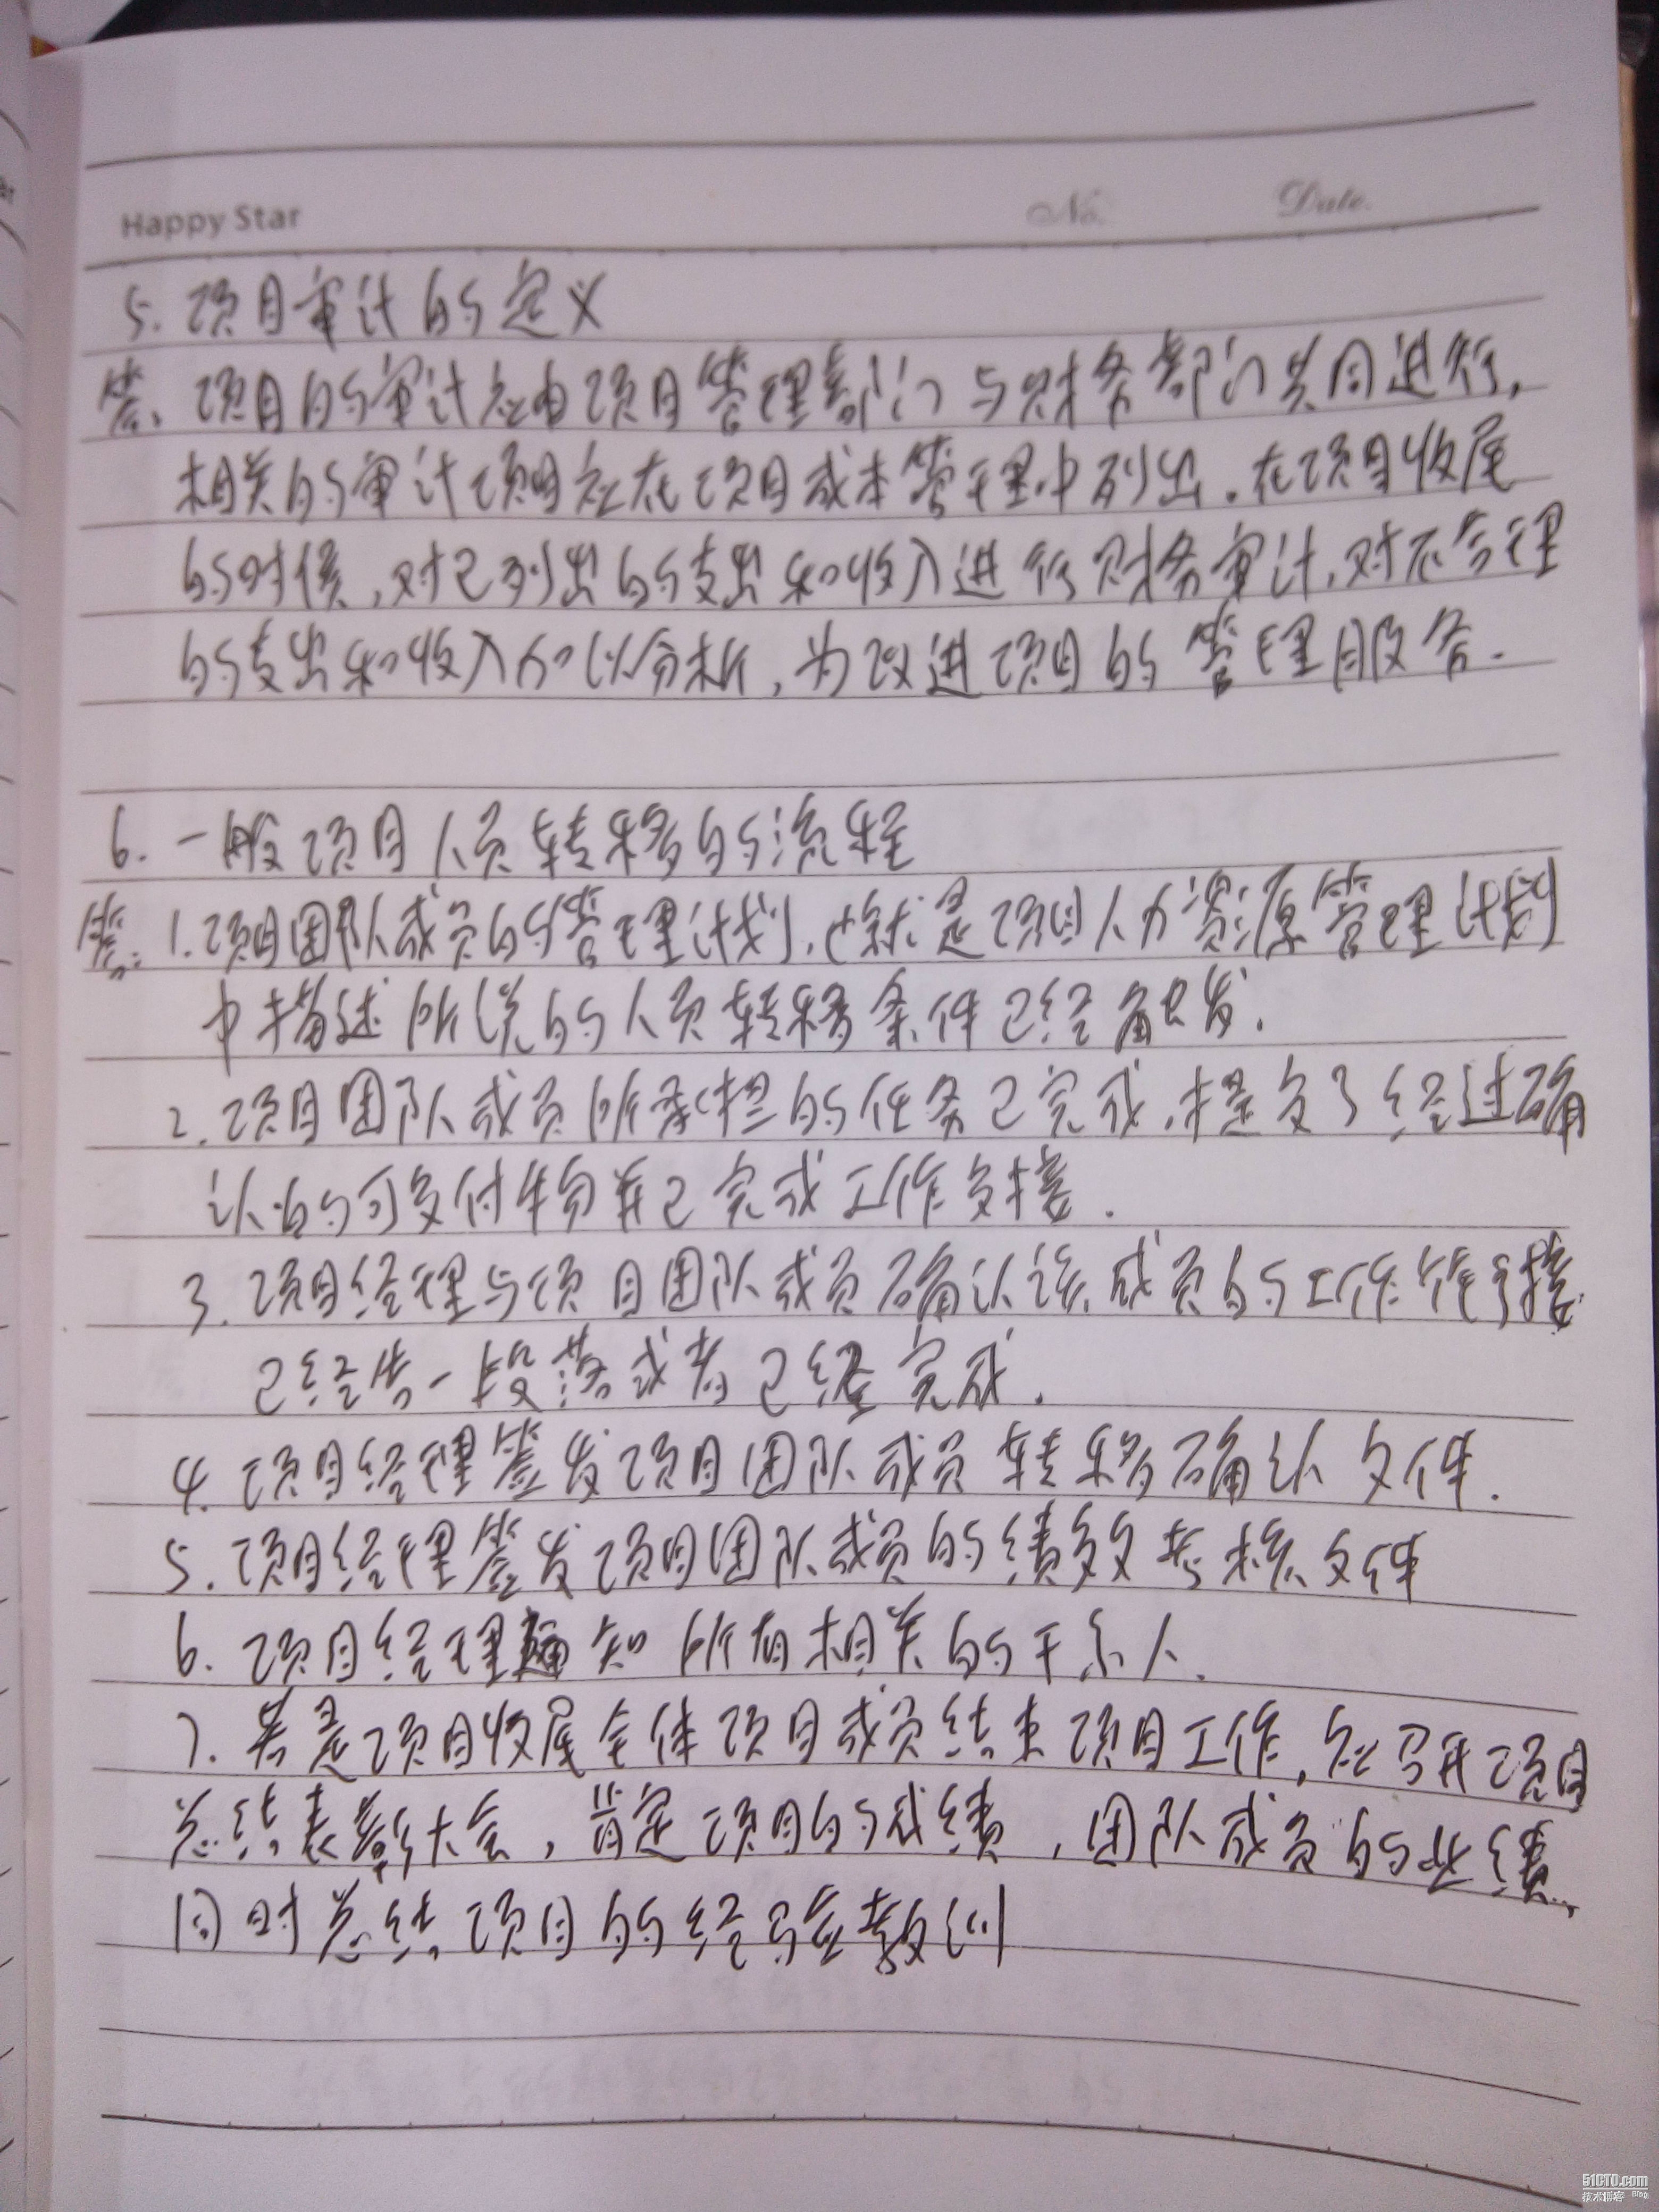 Happy Star No. Date.
5. 项目审计的定义
答. 项目的审计应由项目管理部门与财务部门共同进行,
相关的审计项目应在项目成本管理中列出. 在项目收尾
的时候, 对已列出的支出和收入进行财务审计, 对不合理
的支出和收入加以分析, 为改进项目的管理服务.
6. 一般项目人员转移的流程
答: 1. 项目团队成员的管理计划, 也就是项目人力资源管理计划
中描述所说的人员转移条件已经触发.
2. 项目团队成员所承担的任务已完成, 提交了经过确
认的可交付物并已完成工作交接.
3. 项目经理与项目团队成员确认该成员的工作作接
已经告一段落或者已经完成.
4. 项目经理签发项目团队成员转移确认文件.
5. 项目经理签发项目团队成员的绩效考核文件
6. 项目经理通知所有相关的干系人.
7. 若是项目收尾全体项目成员结束项目工作, 应召开项目
总结表彰大会, 肯定项目的成绩, 团队成员的业绩,
同时总结项目的经验教训
51CTO.com
技术博客 Blog